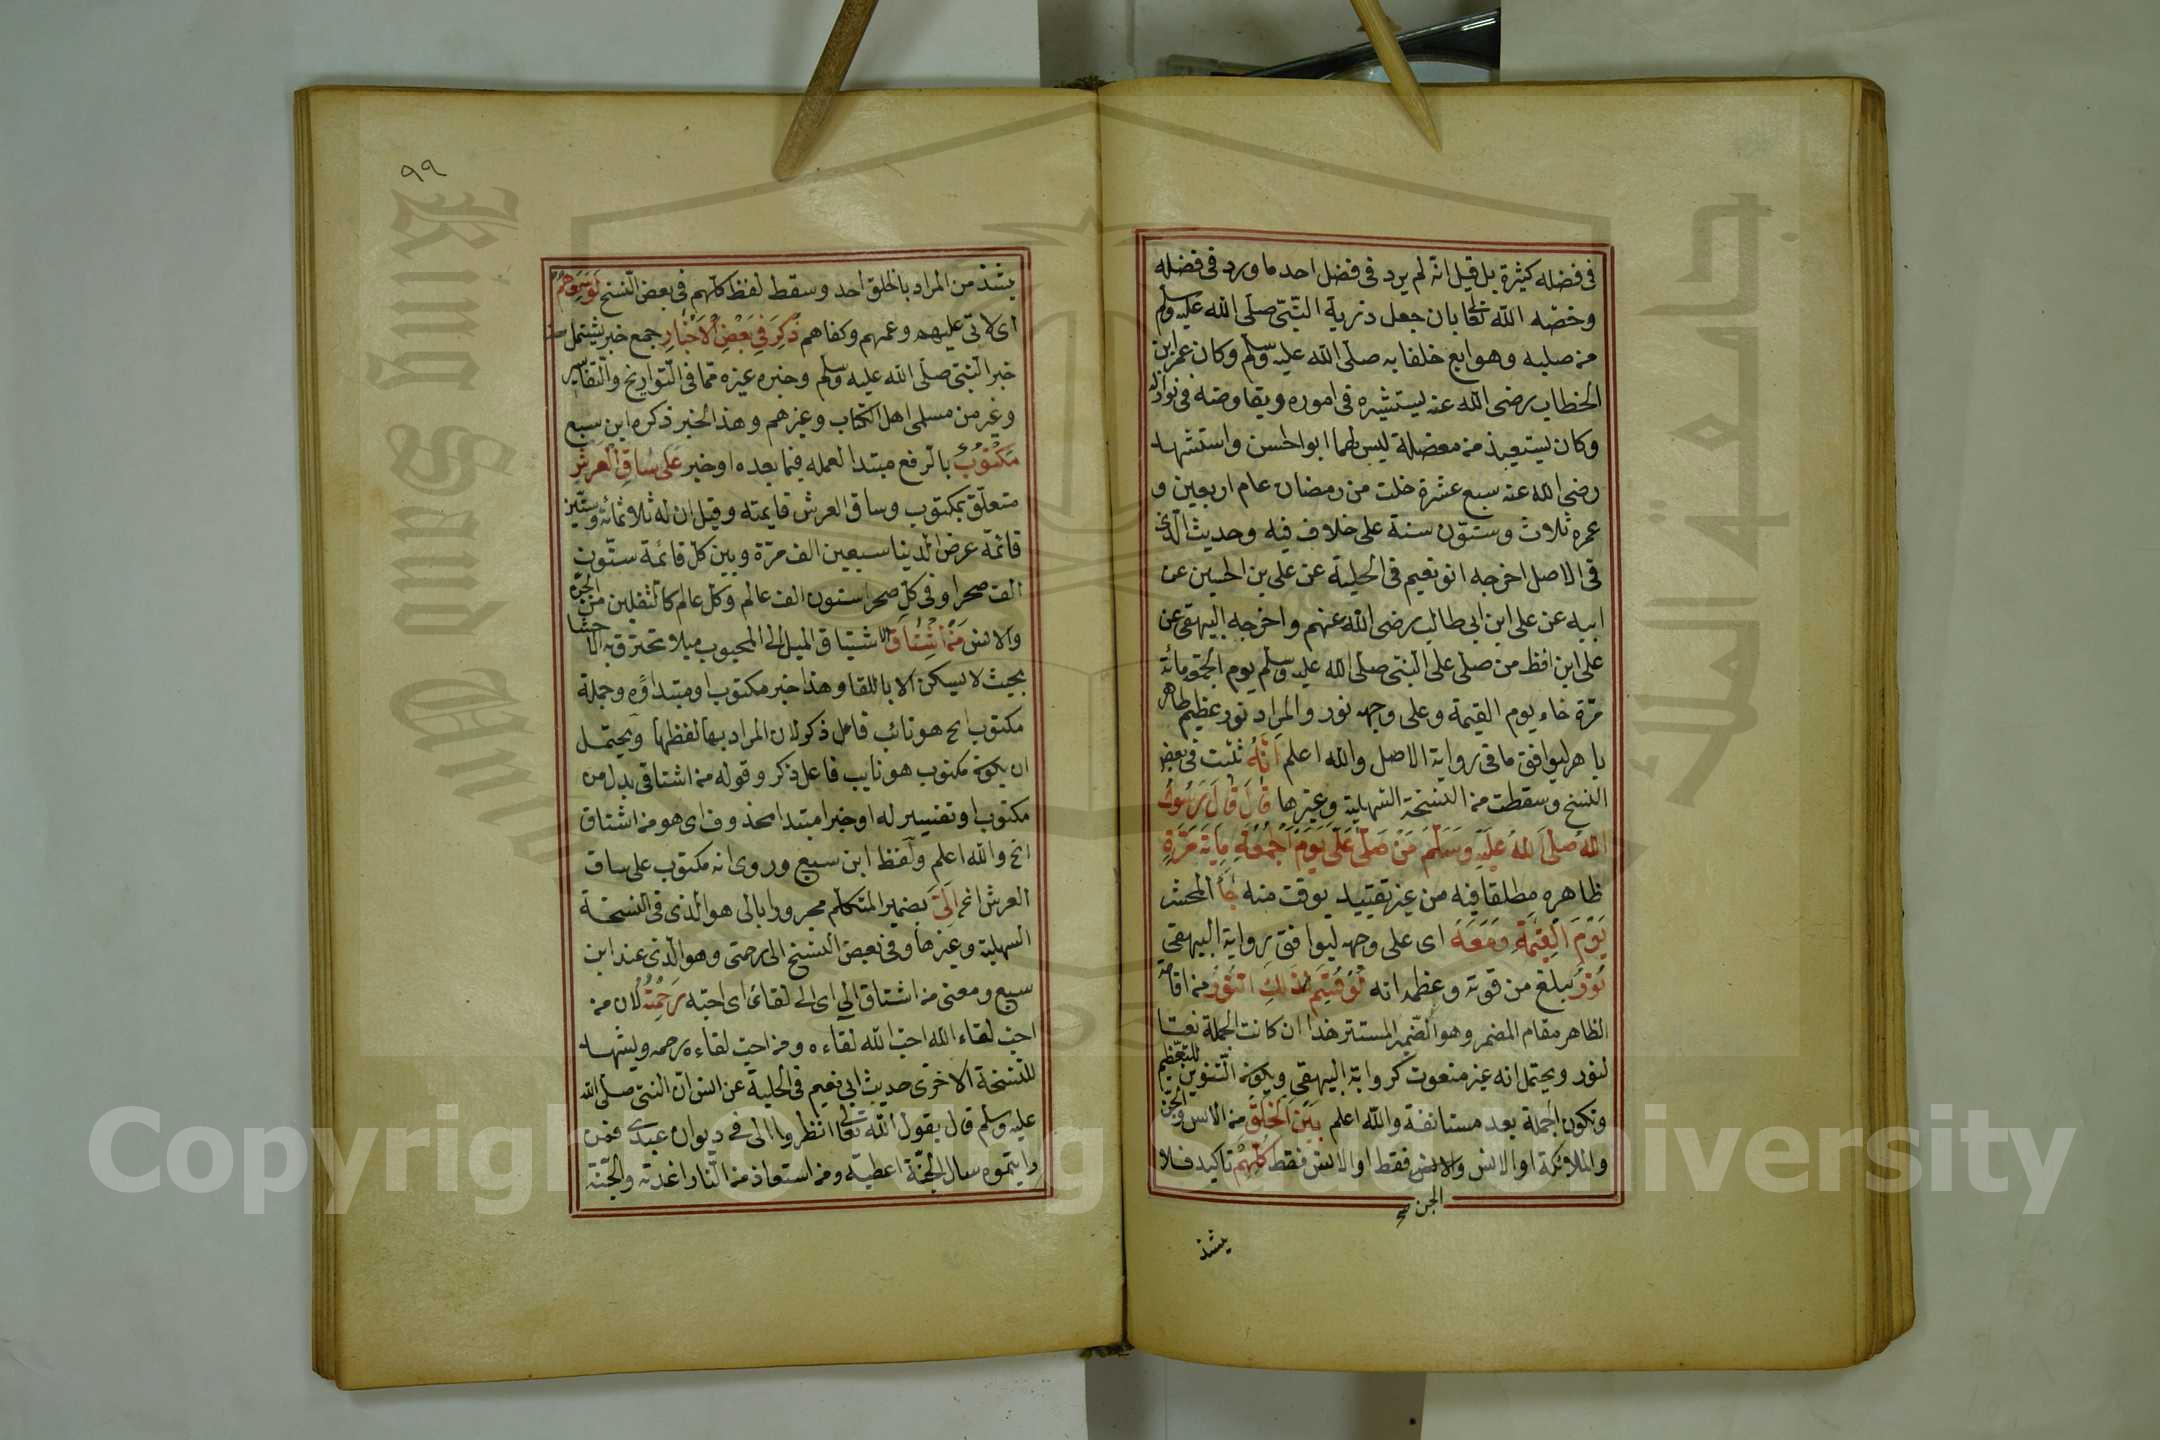 فى فضله كثيرة بل قيل انه لم يرد فى فضل احد ما ورد فى فضله
وخصه الله تعالى بان جعل ذرية النبى صلى الله عليه وسلم
من صلبه وهو رابع خلفا به صلى الله عليه وسلم وكان عمر ابن
الخطاب رضى الله عنه يستشيره فى اموره ويفاوضه فى نوازله
وكان يستعيذ من معضلة ليس لها ابو الحسن واستشهد
رضى الله عنه سبع عشرة خلت من رمضان عام اربعين و
عمره ثلاث وستون سنة على خلاف فيه وحديث الذى
فى الاصل اخرجه ابو نعيم فى الحلية عن على بن الحسين عن
ابيه عن على ابن ابى طالب رضى الله عنهم واخرجه البيهقى عن
على ابن افظ من صلى على النبى صلى الله عليه وسلم يوم الجمعة مائة
مرة جاء يوم القيمة وعلى وجهه نور والمراد نور عظيم ظاهر
باهر ليوافق ما فى رواية الاصل والله اعلم انه ثبت فى بعض
النسخ وسقطت من النسخة السهلية وغيرها قال قال رسول
الله صلى الله عليه وسلم من صلى على يوم الجمعة مائة مرة
ظاهره مطلقا فيه من غير تقييد بوقت منه جاء المحشر
يوم القيمة ومعه اى على وجهه ليوافق رواية البيهقى
نور يبلغ من قوته وعظمه انه لو قسم ذلك النور من اقامة
الظاهر مقام المضمر وهو الضمير المستتر هذا ان كانت الجملة نعتا
لنور ويحتمل انه غير منعوت كرواية البيهقى ويكون التنوين للتعظيم
وتكون الجملة بعد مستانفة والله اعلم بين الخلق من الانس والجن
والملائكة او الانس والجن فقط او الانس فقط كلهم تاكيد فلا
الجن صح
يشذ
٩٩
يشذ من المراد بالخلق احد وسقط لفظ كلهم فى بعض النسخ لوسعهم
اى لاتى عليهم وعمهم وكفاهم ذكر فى بعض الاخبار جمع خبر يشتمل
خبر النبى صلى الله عليه وسلم وخبره غيره مما فى التواريخ والتفاسير
وغير من مسلمى اهل الكتاب وغيرهم وهذا الخبر ذكره ابن سبع
مكتوب بالرفع مبتدا لعمله فيما بعده او خبر على ساق العرش
متعلق بمكتوب وساق العرش قايمته وقيل ان له ثلاثمائة وستين
قائمة عرض الدنيا سبعين الف مرة وبين كل قائمة ستون
الف صحرا وفى كل صحرا ستون الف عالم وكل عالم كالثقلين من الجن
والانس من اشتاق الاشتياق الميل الى المحبوب ميلا تحترق به الاحشا
بحيث لا يسكن الا باللقا وهذا خبر مكتوب او مبتداؤه وجملة
مكتوب الخ هو نائب فاعل ذكر لان المراد بها لفظها ويحتمل
ان يكون مكتوب هو نايب فاعل ذكر وقوله من اشتاق بدل من
مكتوب او تفسير له او خبر مبتدا محذوف اى هو من اشتاق
الخ والله اعلم ولفظ ابن سبع وروى انه مكتوب على ساق
العرش الخ الى بضمير المتكلم مجرورا بالى هو الذى فى النسخة
السهلية وغيرها وفى بعض النسخ الى رحمتى وهو الذى عند ابن
سبع ومعنى من اشتاق الى اى الى لقائى اى احبه رحمته لان من
احب لقاء الله احب الله لقاءه ومن احب لقاءه رحمه ويشهد
للنسخة الاخرى حديث ابى نعيم فى الحلية عن انس ان النبى صلى الله
عليه وسلم قال يقول الله تعالى انظروا الى فى ديوان عبدى فمن
رايتموه سال الجنة اعطيته ومن استعاذ من النار اعذته والجنة
Copyright © King Saud University
King Saud University
جامعة الملك